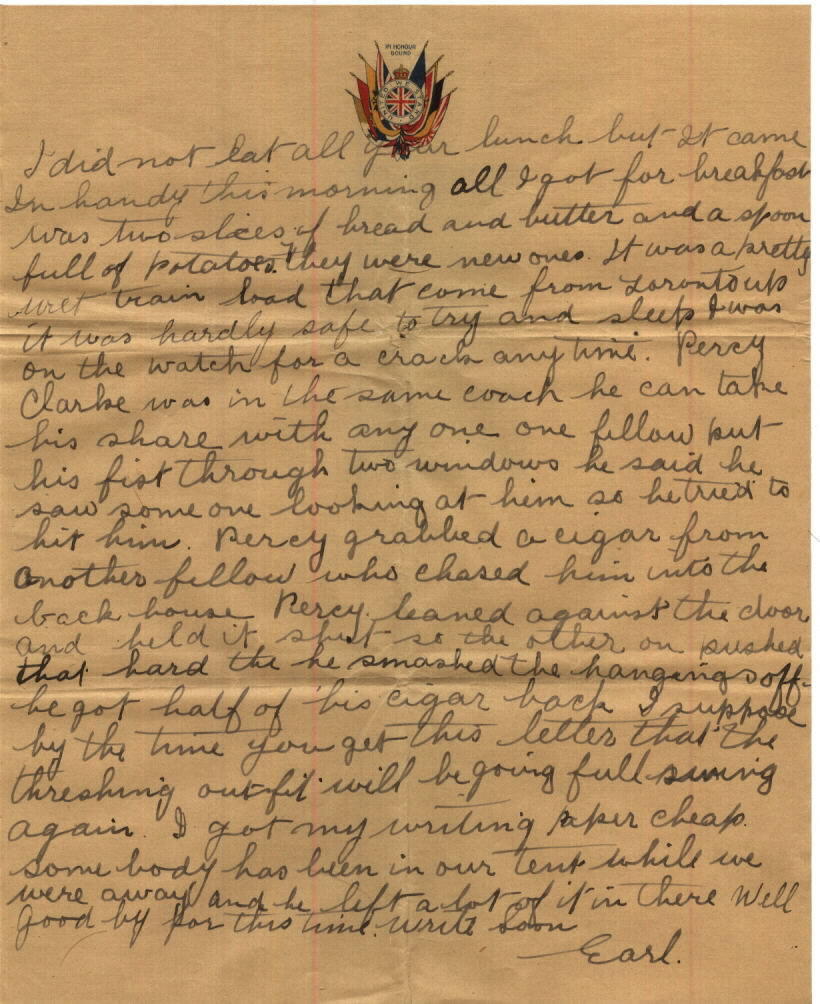 IN HONOUR
BOUND
UNITED WE STAND
I did not eat all your lunch but It came
In handy this morning all I got for breakfast
was two slices of bread and butter and a spoon
full of potatoes. they were new ones. It was a pretty
wet train load that come from Toronto up
it was hardly safe to try and sleep I was
on the watch for a crack any time. Percy
Clarke was in the same coach he can take
his share with any one one fellow put
his fist through two windows he said he
saw some one looking at him so he tried to
hit him. Percy grabbed a cigar from
another fellow who chased him into the
back house Percy leaned against the door
and held it shut so the other on pushed
that hard the he smashed the hangings off
he got half of his cigar back I suppose
by the time you get this letter that the
threshing outfit will be going full swing
again. I got my writing paper cheap.
some body has been in our tent while we
were away and he left a lot of it in there Well
good by for this time. write soon
Earl.